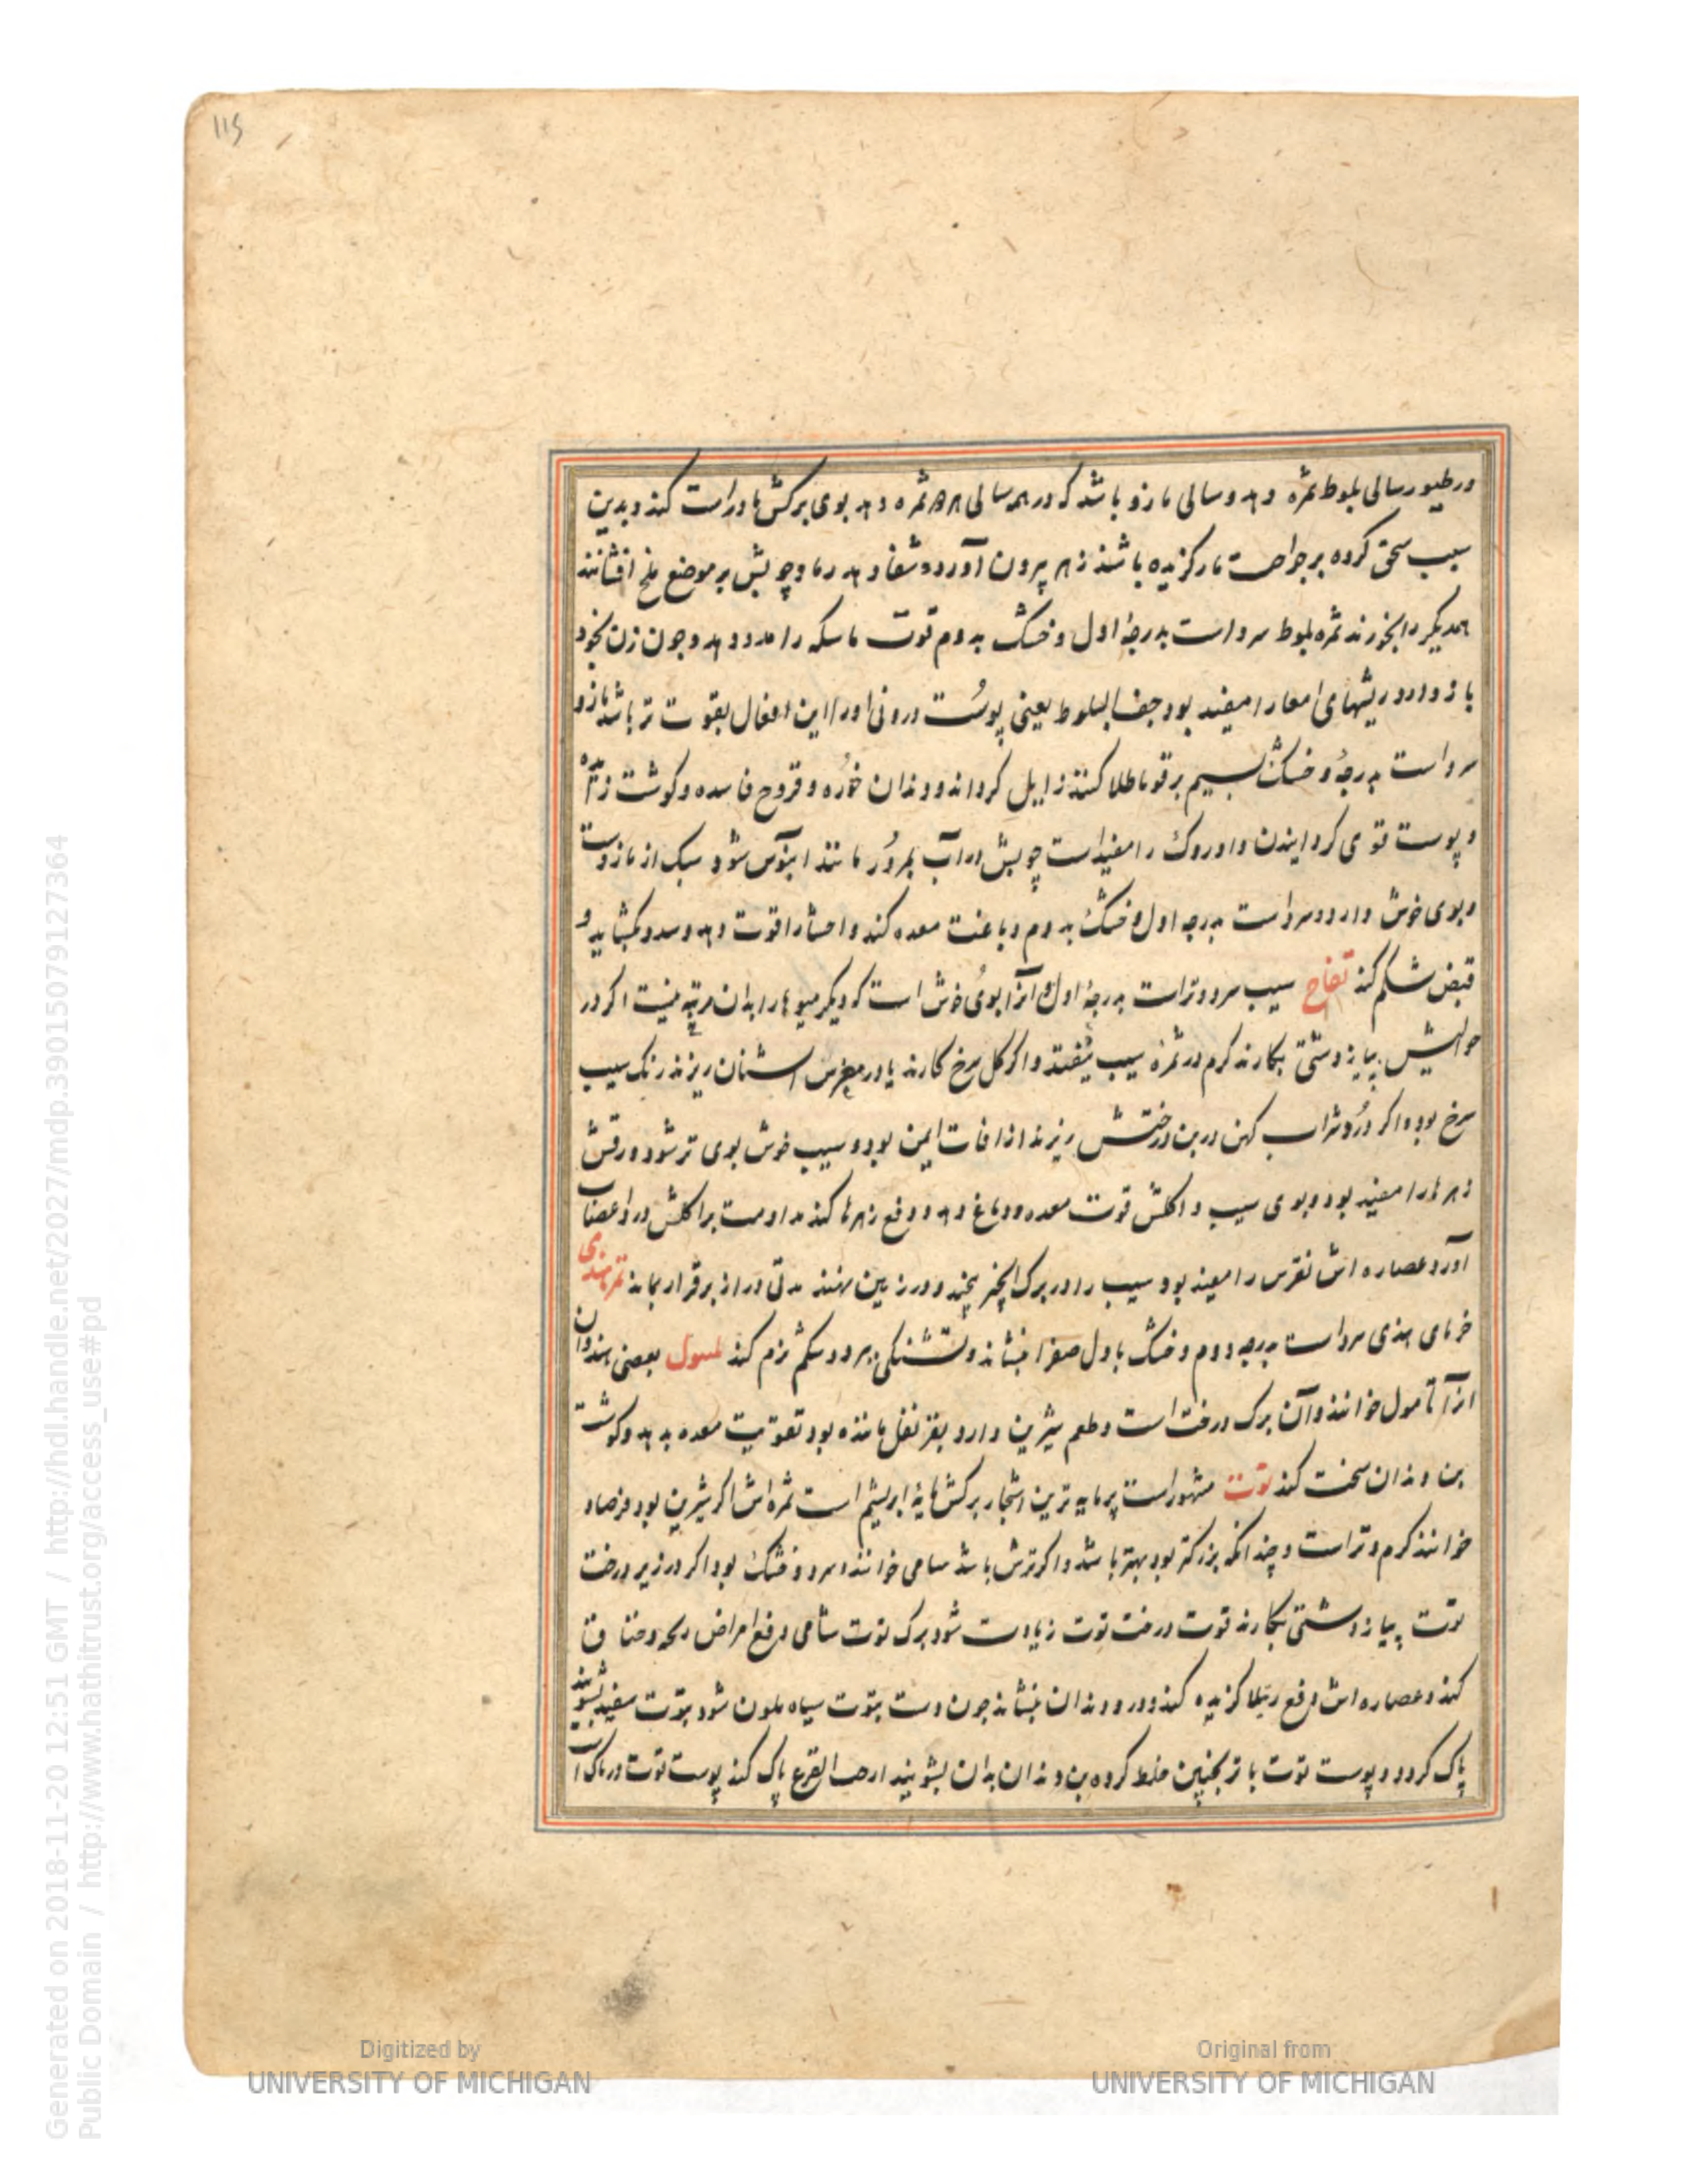 115
در طیور سالی بلوط ثمره دهد و سالی مازو باشد که در همه سالی ثمره دهد بوی برکش مار راست کند و بدین
سبب سحق کرده بر جراحت مار کزیده باشند زهر بیرون آورد و شفا دهد و چوبش بر موضع ملخ افشانند
همدیکر را بخورند ثمره بلوط سرد است بدرجهٔ اول و خشک بدوم قوت ماسکه را مدد دهد و چون زن بخود
باز دارد و ریشهای امعا را مفید بود جفت البلوط یعنی پوست درونی او را این افعال بقوت تر باشد مازو
سرد است بدرجهٔ و خشک بسیم بر قوبا طلا کنند زایل کرداند و دندان خوره و قروح فاسده و کوشت زیاده
و پوست قوی کردانیدن داروک را مفید است چوبش در آب بمرور مانند ابنوس شود سبک از مازوست
و بوی خوش دارد و سرد است بدرجه اول و خشک بدوم دباغت معده کند و احشا را قوت دهد و سدد بکشاید و
قبض شکم کند تفاح سیب سرد و تر است بدرجهٔ اول و آنرا بوی خوش است که دیکر میوها را بدان مرتبه نیست اکر در
حوالیش پیاز دشتی بکارند کرم در ثمرهٔ سیب نیفتد و اکر کل سرخ کارند یا در مغرس اشنان ریزند رنک سیب
سرخ بود و اکر درد شراب کهن در بن درختش ریزند از افات ایمن بود و سیب خوش بوی تر شود ورقش
زهرها را مفید بود و بوی سیب و اکلش قوت معده و دماغ دهد و دفع زهرها کند مداومت بر اکلش درد اعصاب
آورد عصاره اش نقرس را مفید بود سیب را در برک انجیر پیچند و در زمین نهند مدتی دراز برقرار بماند تمر هندی
خرمای هندی سرد است بدرجه دوم و خشک باول صفرا بنشاند و تشنکی ببرد و شکم نرم کند تنبول بعضی هندوان
آنرا تامول خوانند و آن برک درخت است و طعم شیرین دارد بقرنفل ماننده بود تقویت معده بدهد و کوشت
بن دندان سخت کند توت مشهور است پرمایه ترین اشجار برکش مایهٔ ابریشم است ثمره اش اکر شیرین بود فرصاد
خوانند کرم و تر است و چندانکه بزرکتر بود بهتر باشد و اکر ترش باشد شامی خوانند سرد و خشک بود اکر در زیر درخت
توت پیاز دشتی بکارند قوت درخت توت زیادت شود برک توت شامی دفع امراض و خناق
کند و عصاره اش دفع رتیلا کزیده کند و درد دندان بنشاند چون دست بتوت سیاه ملون شود بتوت سفید بشویند
پاک کردد و پوست توت با ترنجبین خلط کرده بن دندان بدان بشویند حب القرع پاک کند پوست توت
Generated on 2018-11-20 12:51 GMT / http://hdl.handle.net/2027/mdp.39015079127364
Public Domain / http://www.hathitrust.org/access_use#pd
Digitized by
UNIVERSITY OF MICHIGAN
Original from
UNIVERSITY OF MICHIGAN